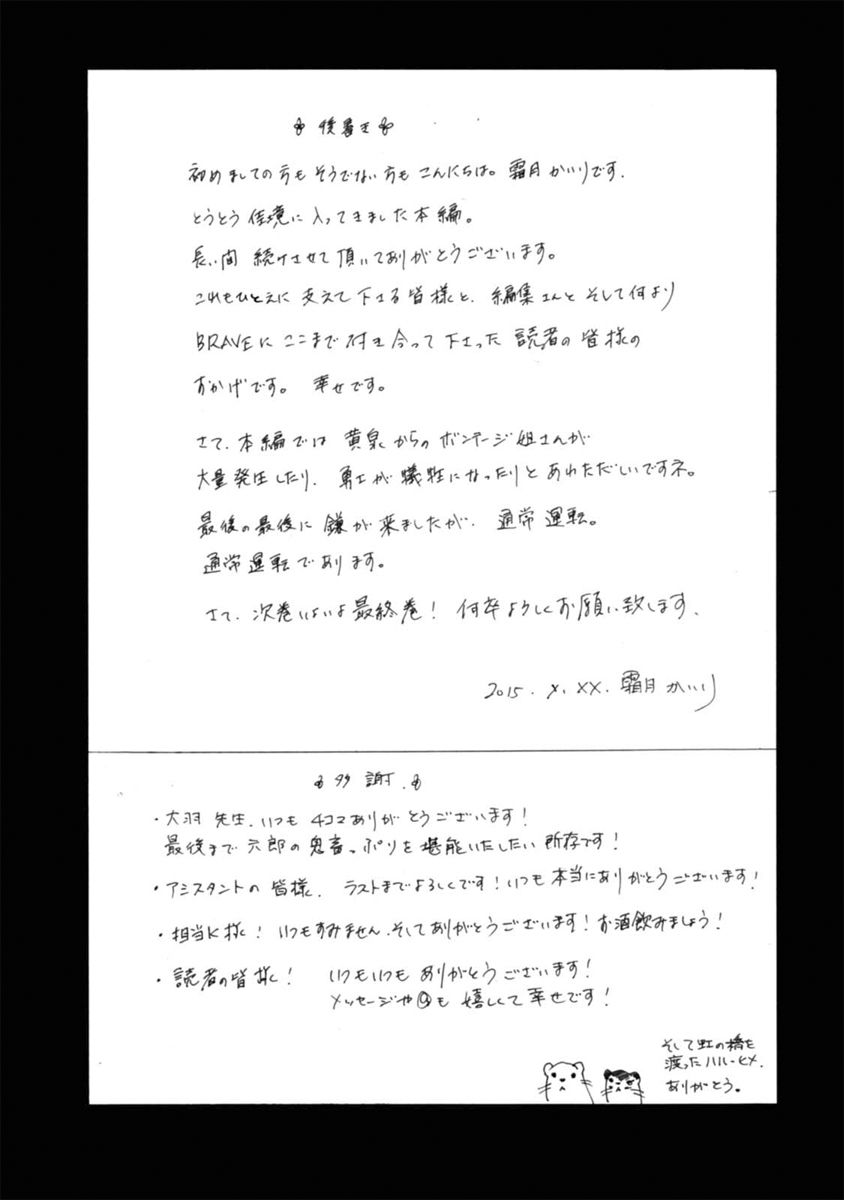 後書き
初めましての方もそうでない方もこんにちは。霜月かいりです.
とうとう佳境に入ってきました本編。
長い間 続けさせて頂いてありがとうございます。
これもひとえに 支えて下さる皆様と、編集さんと そして何より
BRAVEにここまで付き合って下さった 読者の皆様の
おかげです。 幸せです。
さて、本編では 黄泉からのボンテージ姐さんが
大量発生したり、勇士が犠牲になったりと あわただしいですネ。
最後の最後に 鎌が来ましたが、通常運転。
通常運転であります。
さて、次巻いよいよ最終巻! 何卒よろしくお願い致します.
2015. X. XX. 霜月かいり
多謝.
・大羽先生、いつも4コマありがとうございます!
最後まで 六郎の鬼畜っぷりを 堪能いたしたい所存です!
・アシスタントの皆様、ラストまでよろしくです!いつも本当にありがとうございます!
・担当K様! いつもすみません、そしてありがとうございます!お酒飲みましょう!
・読者の皆様! いつもいつも ありがとうございます!
メッセージや も 嬉しくて幸せです!
そして虹の橋を
渡ったハル-ヒメ.
ありがとう。